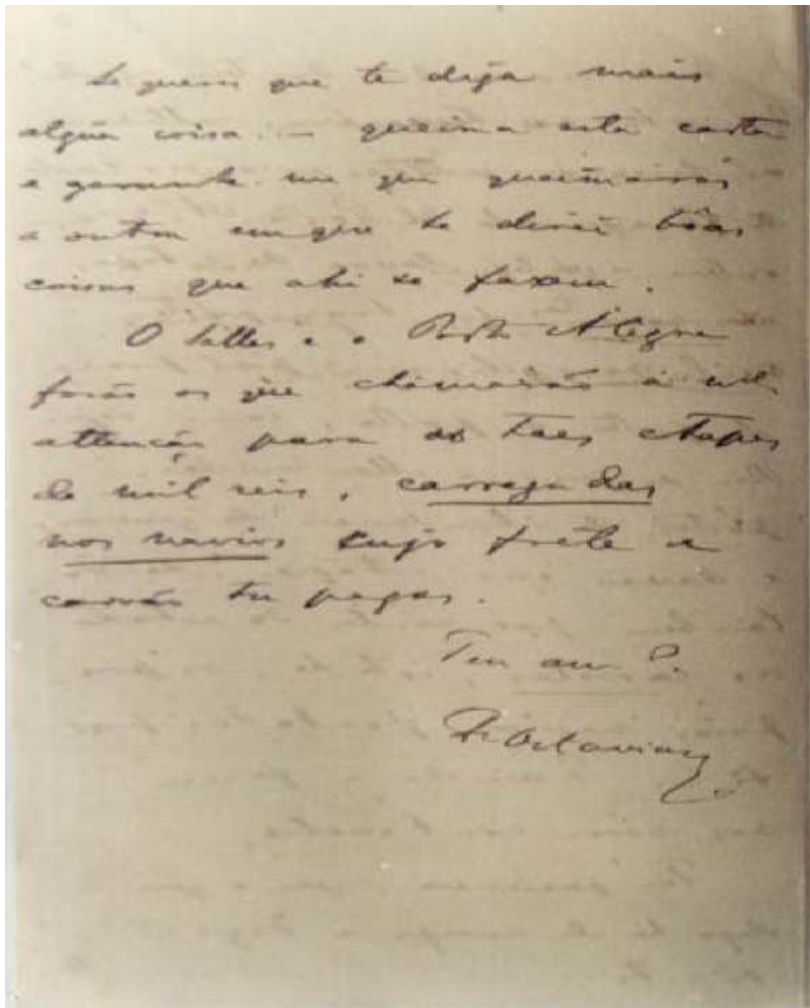 Se queres que te diga mais
algũa coisa. — queima esta carta
e garante-me que queimarás
a outra em que te direi bôas
coisas que ahi se fazem.
O Telles e o Porto Alegre
forão os que chamarão a
attenção para as taes etapes
de mil reis, carregadas
nos navios cujo frete e
carvão tu pagas.
Teu am.º
F. Octaviano